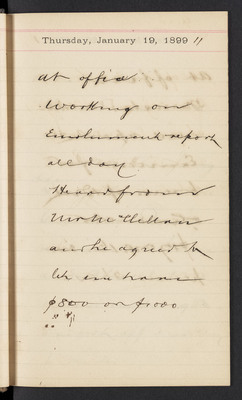 Thursday, January 19, 1899
at office
working on
Enrolment report
all day
Heard from
Mr McClellan
and he agreed to
let me have
$800 or $1000